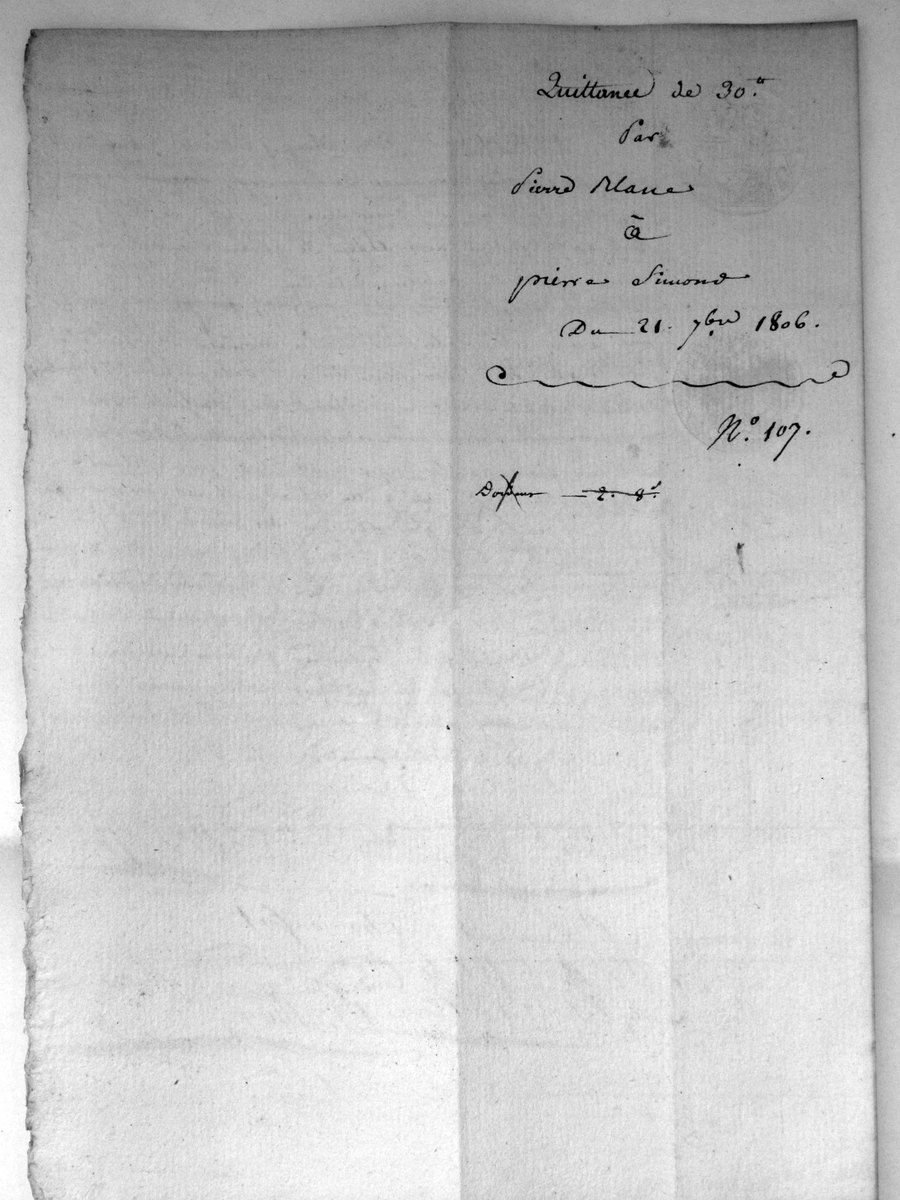 Quittance de 30.tt
Par
Pierre Blanc
à
pierre Simond
Du 21. 7bre 1806.
N.o 107.
2. 8s.